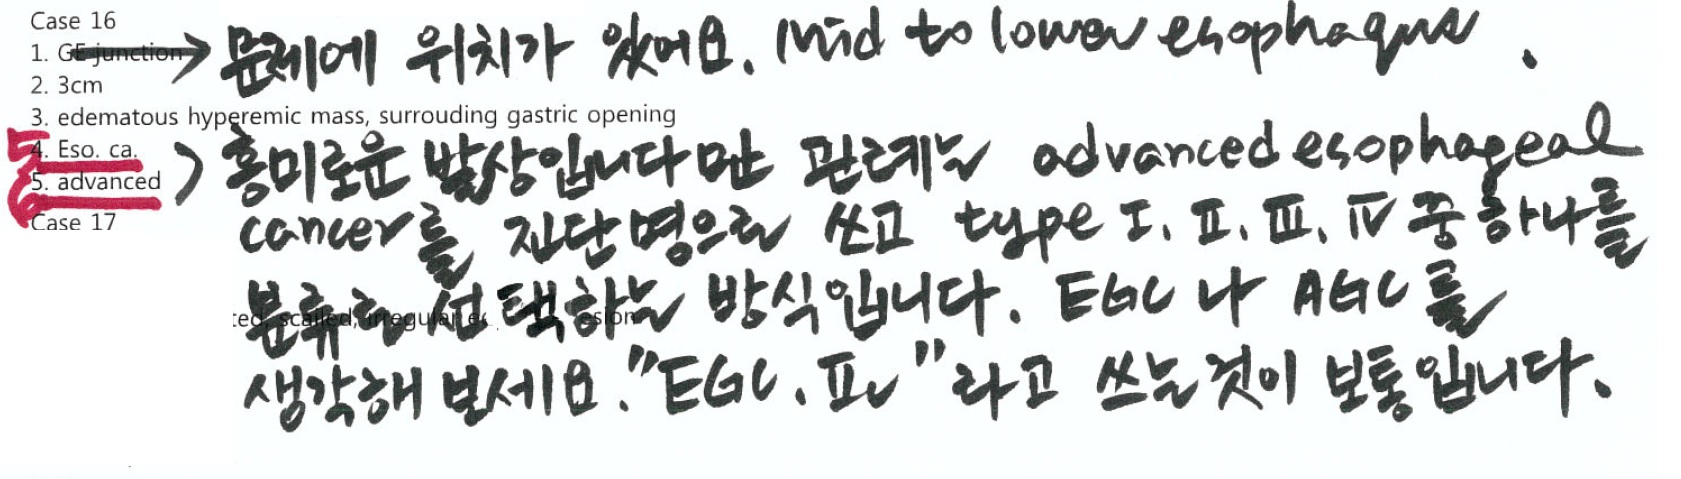 Case 16
1. GE junction → 문제에 위치가 있어요. mid to lower esophagus.
2. 3cm
3. edematous hyperemic mass, surrouding gastric opening
5 4. Eso. ca.
6 5. advanced
Case 17
흥미로운 발상입니다만 관례는 advanced esophageal
cancer를 진단명으로 쓰고 type I. II. III. IV 중 하나를
분류해 선택하는 방식입니다. EGC나 AGC를
ted, scalled, irregular esion
생각해 보세요. "EGC. IIc" 라고 쓰는 것이 보통입니다.